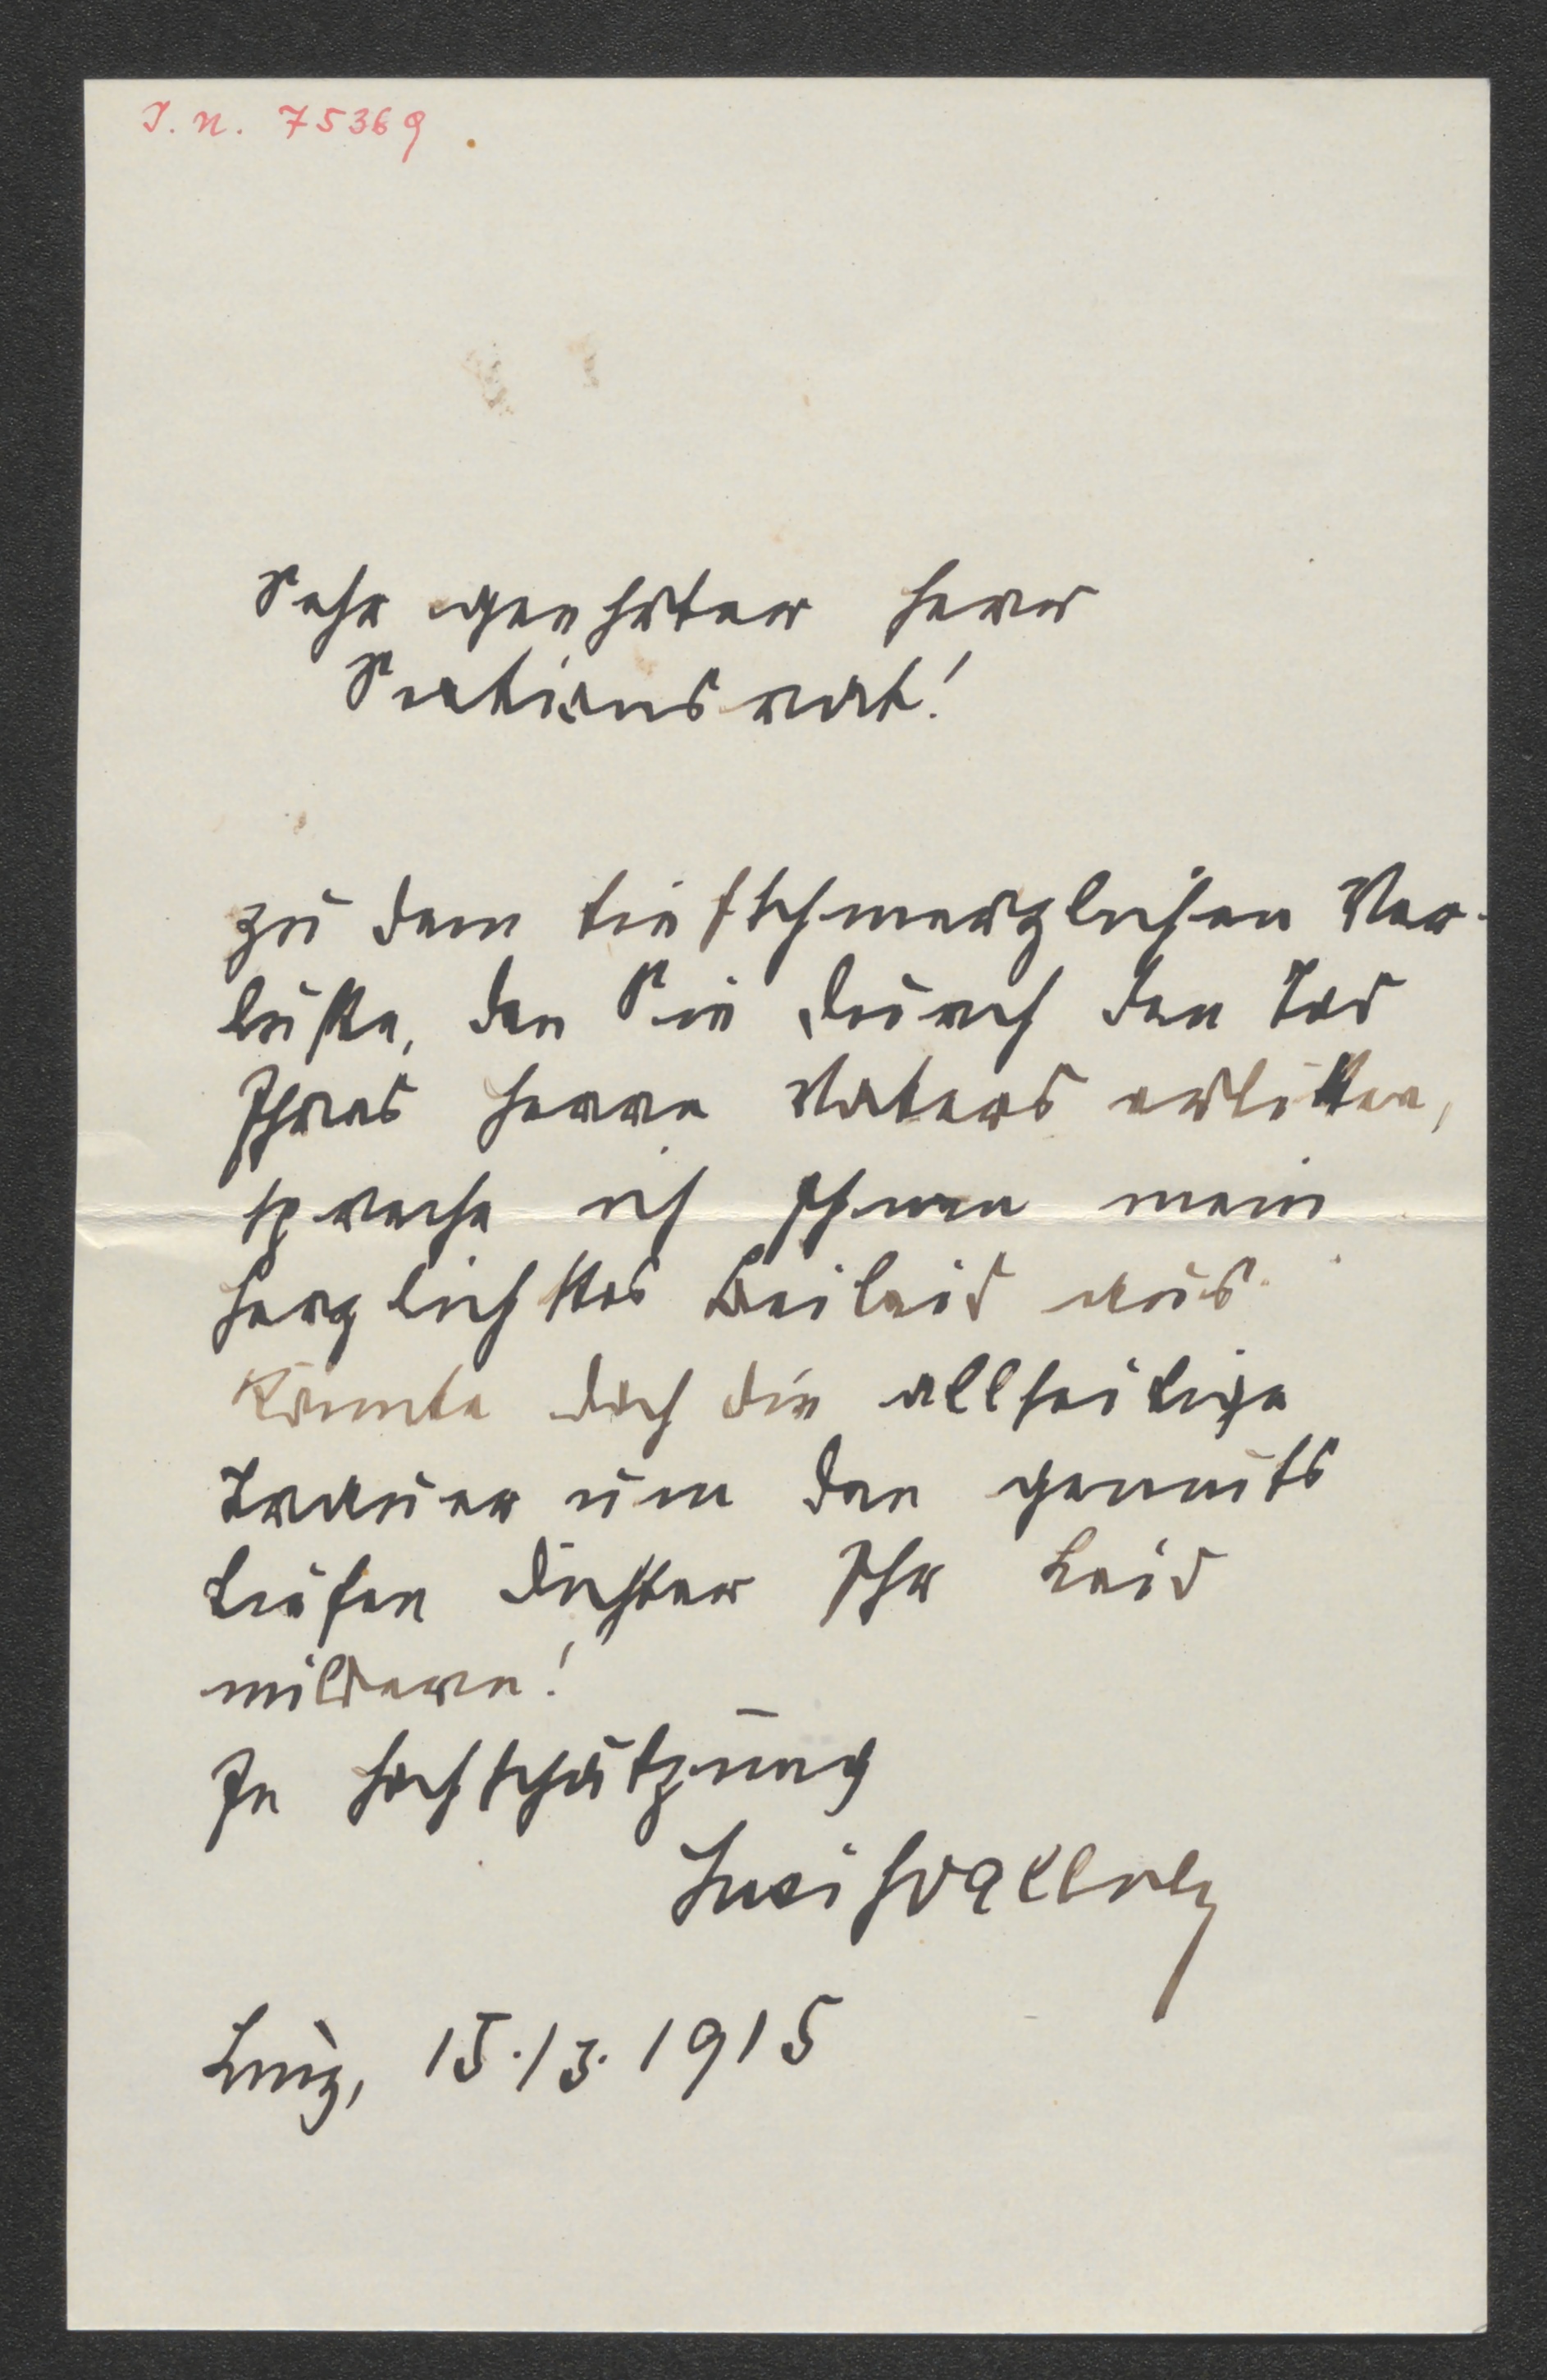 I. N. 75369.
Sehr geehrter Herr
Sektionsrat!
zu dem tiefschmerzlichen Ver-
luste, den Sie durch den Tod
Ihres Herrn Vaters erlitten,
spreche ich Ihnen mein
herzlichstes Beileid aus.
Könnte doch die allseitige
Trauer um den gemüts
tiefen Dichter Ihr Leid
mildern!
In Hochschätzung
Linz, 15./3. 1915